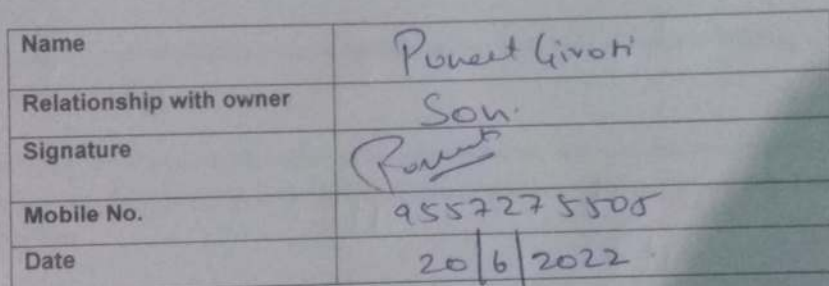 Name Puneet Giroti
Relationship with owner Son.
Signature Puneet
Mobile No. 9557275505
Date 20/6/2022